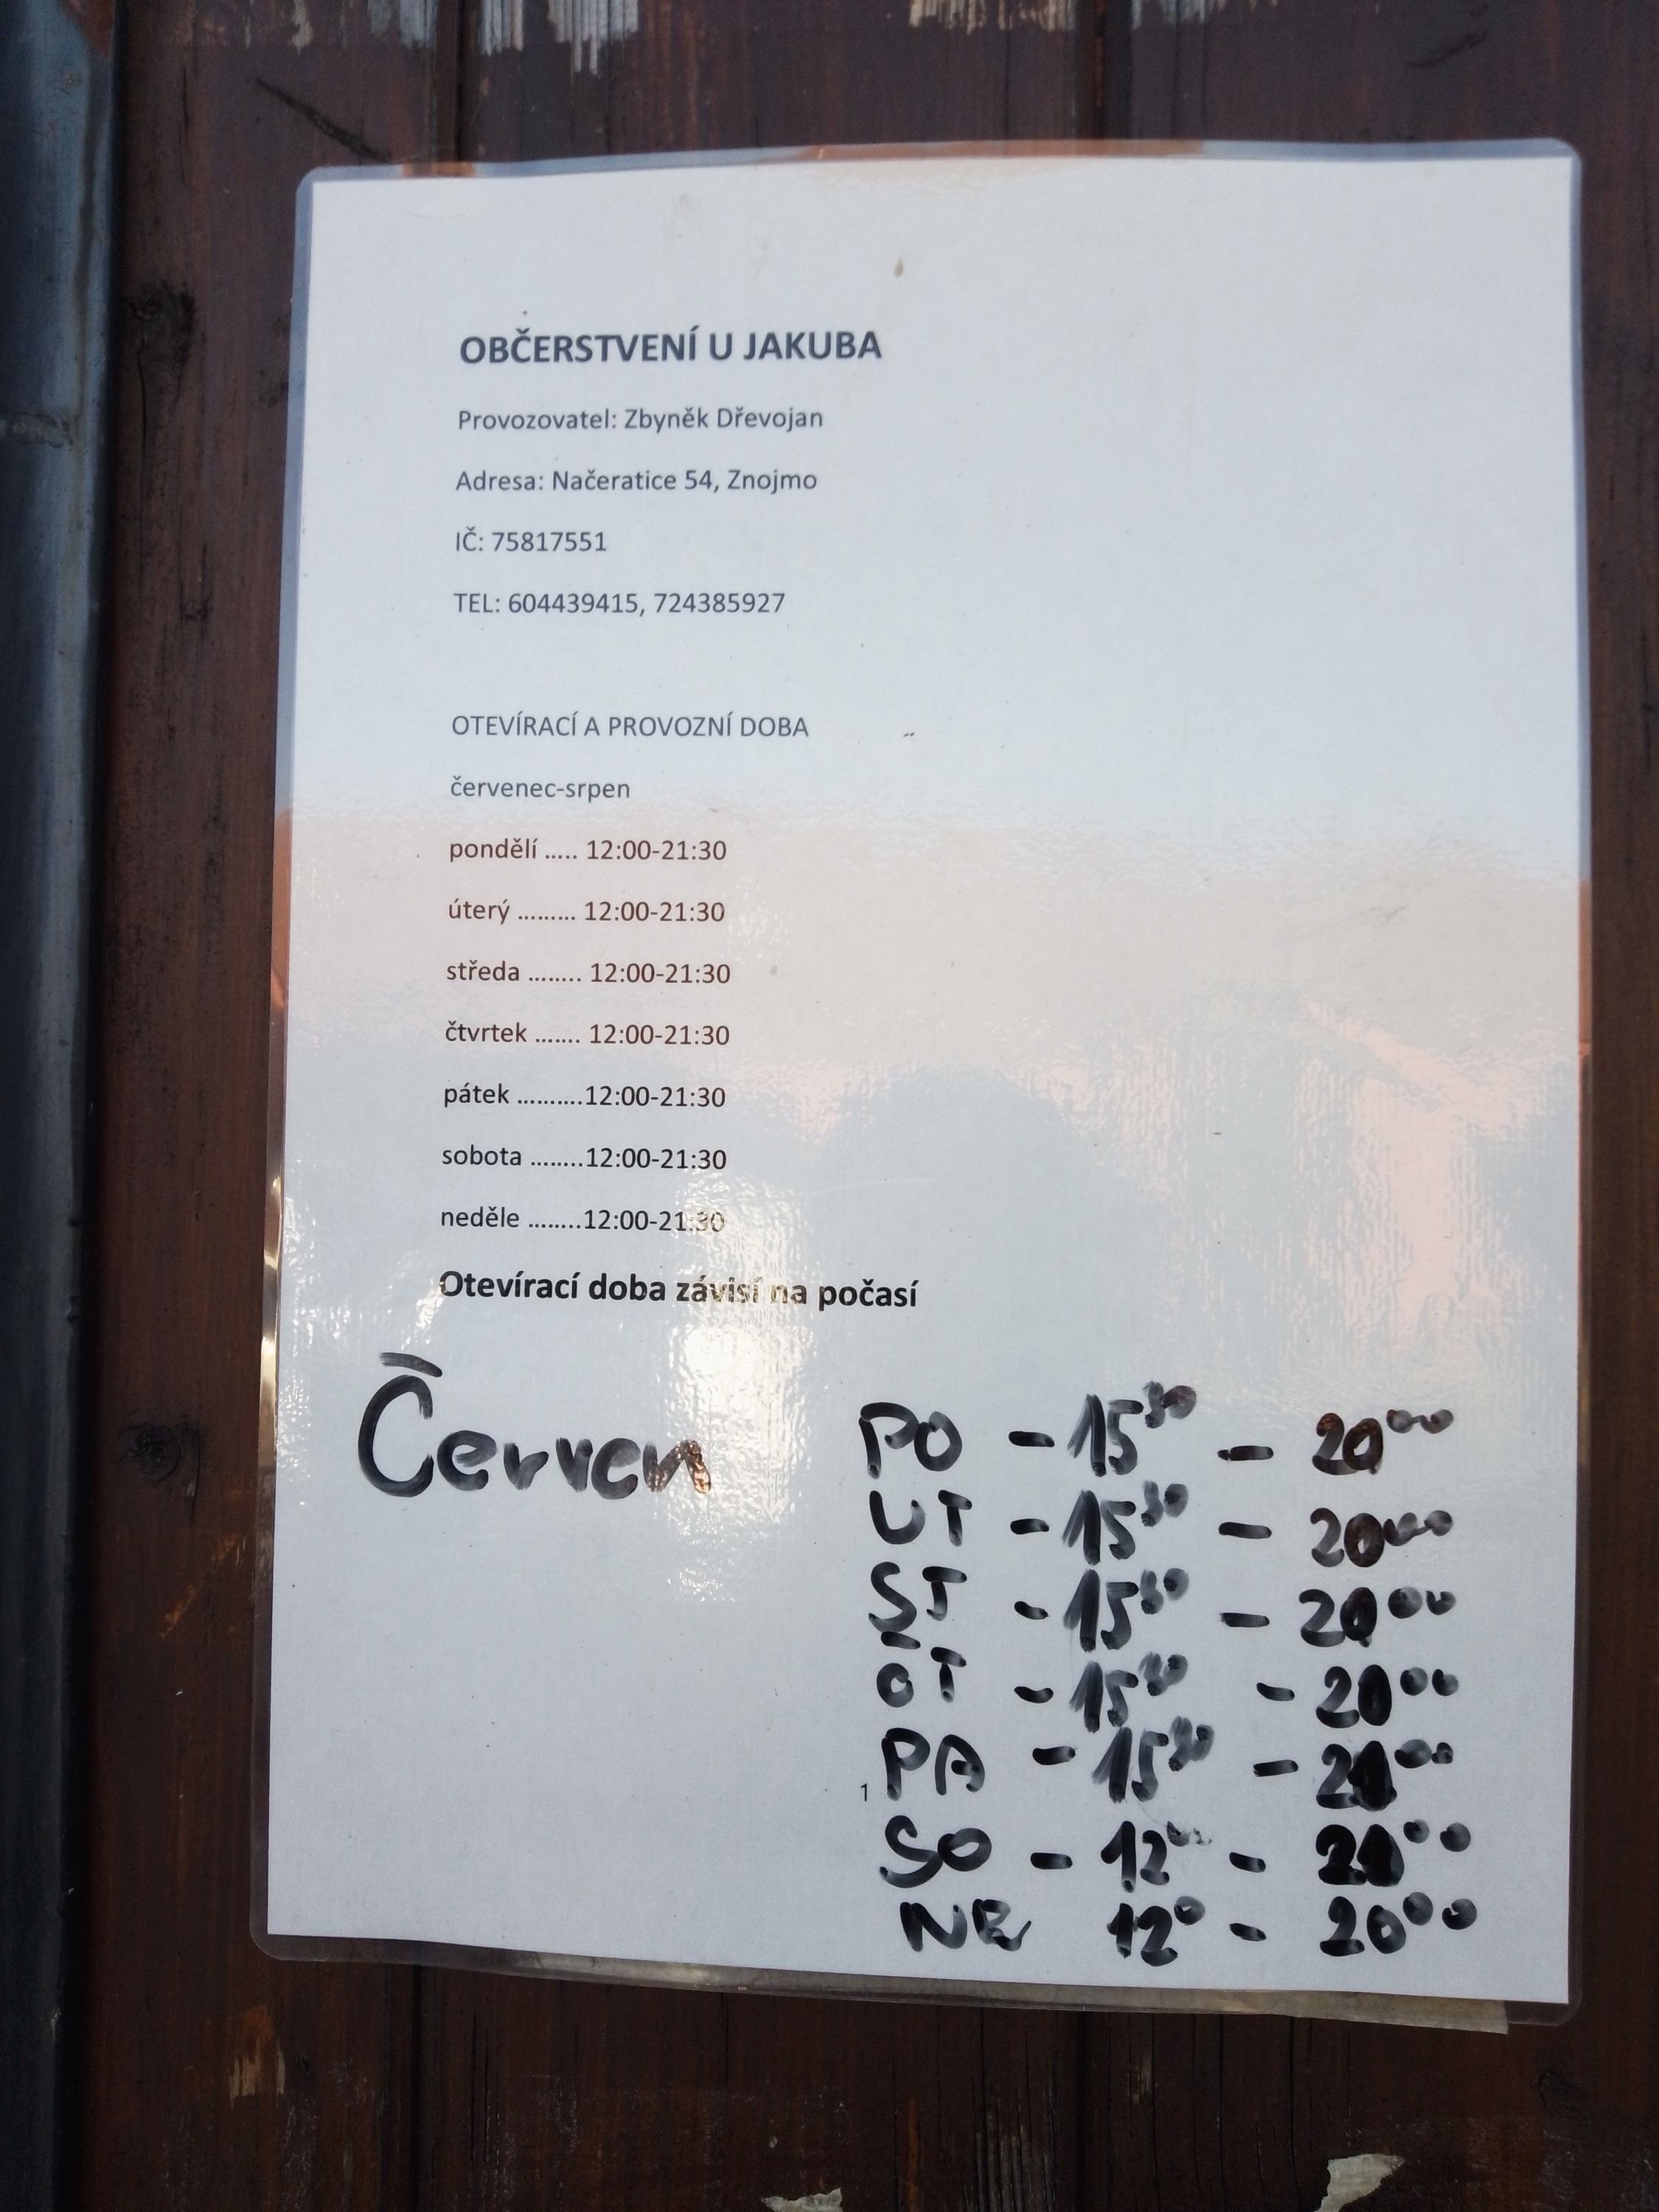 OBČERSTVENÍ U JAKUBA
Provozovatel: Zbyněk Dřevojan
Adresa: Načeratice 54, Znojmo
IČ: 75817551
TEL: 604439415, 724385927
OTEVÍRACÍ A PROVOZNÍ DOBA
červenec-srpen
pondělí ..... 12:00-21:30
úterý ......... 12:00-21:30
středa ........ 12:00-21:30
čtvrtek ....... 12:00-21:30
pátek ..........12:00-21:30
sobota ........12:00-21:30
neděle ........12:00-21:30
Otevírací doba závisí na počasí
Červen
PO - 15³⁰ - 20⁰⁰
UT - 15³⁰ - 20⁰⁰
ST - 15³⁰ - 20⁰⁰
ČT - 15³⁰ - 20⁰⁰
PA - 15³⁰ - 20⁰⁰
1
SO - 12⁰⁰ - 20⁰⁰
NE 12⁰ - 20⁰⁰